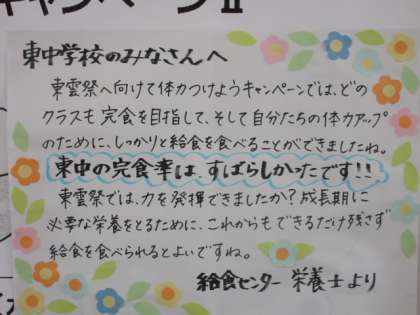 キャンペーンⅡ
東中学校のみなさんへ
東雲祭へ向けて体力つけようキャンペーンでは、どの
クラスも完食を目指して、そして自分たちの体力アップ
のために、しっかりと給食を食べることができましたね。
東中の完食率は、すばらしかったです!!
東雲祭では、力を発揮できましたか?成長期に
必要な栄養をとるために、これからもできるだけ残さず
給食を食べられるとよいですね。
給食センター 栄養士より